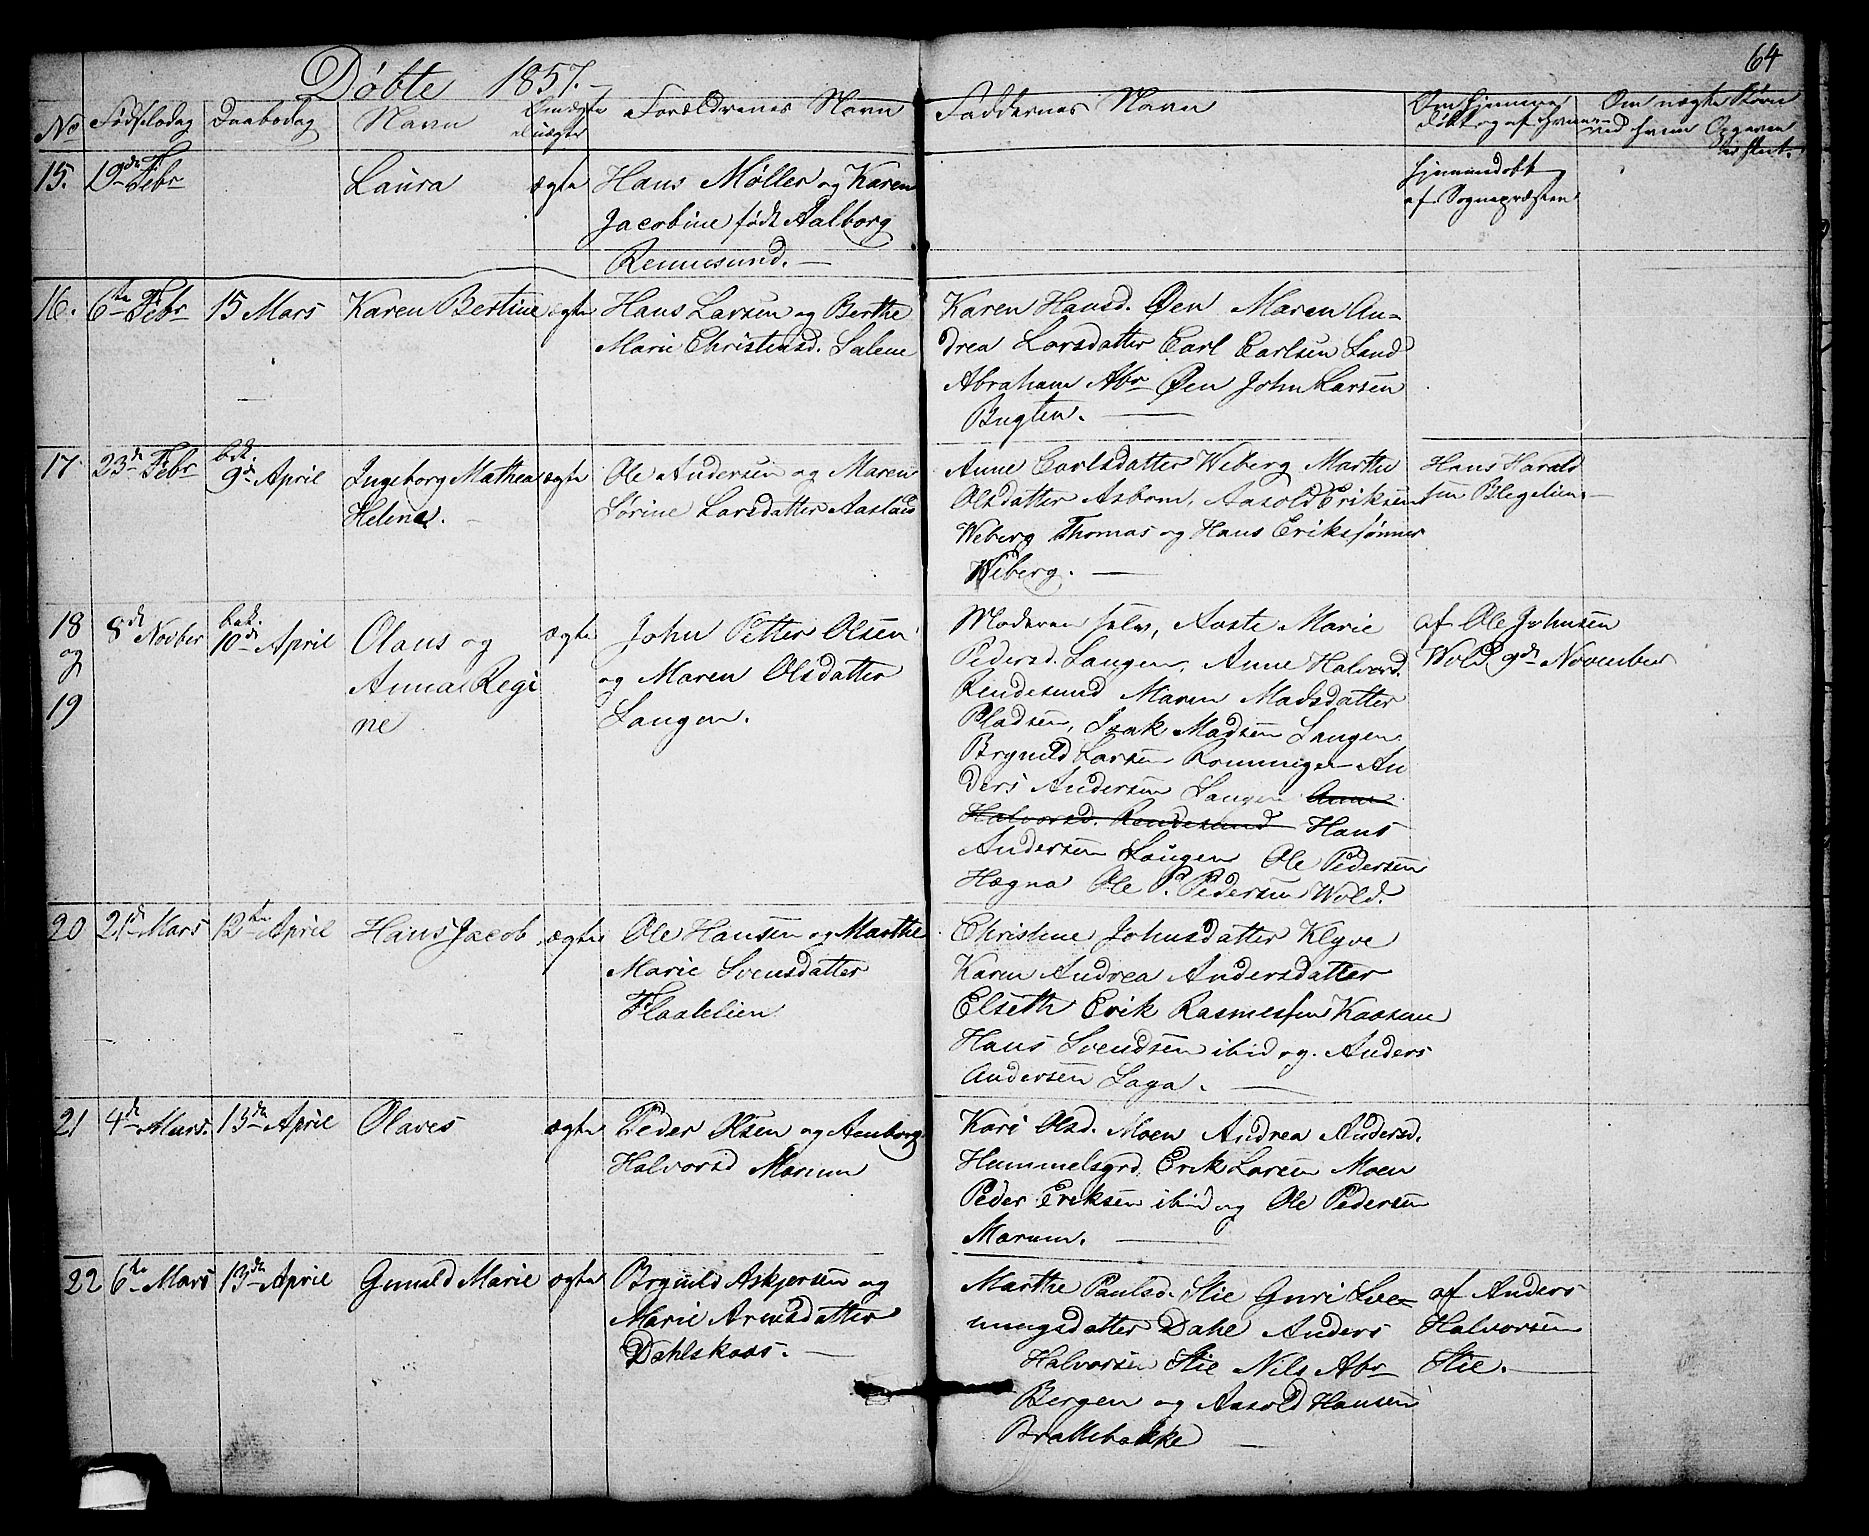 64
Døbte 1857.-
No Fødselsdag Daabsdag Navn Om ægte el. uægte Forældrenes Navn Faddernes Navn Om hjemme døbt og af hvem Om uægte Børn ved hvem Opgaven er skeet.
15. 19de Febr Laura ægte Hans Møller og Karen hjemmedøbt
Jacobine født Aalborg af Sognepræsten
Rennesund. -
16. 6te Febr 15 Mars Karen Bertine ægte Hans Larsen og Berthe Karen Hansd. Øen Maren An-
Marie Christensd. Salene drea Larsdatter Carl Carlsen Sand
Abraham Abr Øen John Larsen
Bugten. -
17 23de Febr bek. 9de April Ingeborg Mathea ægte Ole Andersen og Maren Anne Carlsdatter Weberg Marthe Hans Harald
Helene. - Sørine Larsdatter Aaslaas Olsdatter Asbom, Aasold Eriksen sen Blegelien. -
Weberg Thomas og Hans Erikssønner
Weberg. -
18 8de Novber bek. 10de April Olaus og ægte John Petter Olsen Moderen selv, Aaste Marie af Ole Johnsen
og Anna Regi og Maren Olsdatter Pedersd. Langen, Anne Halvorsd. Wold 9de November
19 ne Langen. Rendesund Maren Madsdatter
Pladsen, Isak Madsen Langen.
Brynild Larsen Rønningen An
ders Andersen Langen Anne
Halvorsd. Rendesund Hans
Andersen Langen Ole Pedersen
Hægna Ole P. Pedersen Wold.
20 21de Mars 12te April Hans Jacob ægte Ole Hansen og Marthe Christine Johnsdatter Klyve
Marie Svensdatter Karen Andrea Andersdatter
Flaatelien Elseth Erik Rasmussen Kaasene
Hans Svendsen ibid og Anders
Andersen Saga. -
21 4de Mars. 13de April Olaves ægte Peder Olsen og Aanborg Kari Olsd. Moen Andrea Andersd.
Halvorsd Marum Hummelsgrd. Erik Larsen Moen
Peder Eriksen ibid og Ole Pedersen
Marum. -
22 6te Mars 13de April Gunild Marie ægte Brynild Askjersen og Marthe Paulsd. Stie Guri Sve- af Anders
Marie Arnesdatter nungsdatter Dahl Anders Halvorsen
Dahlskaas. - Halvorsen Stie Nils Abr Stie. -
Bergen og Aasold Hansen
Brattebakke -